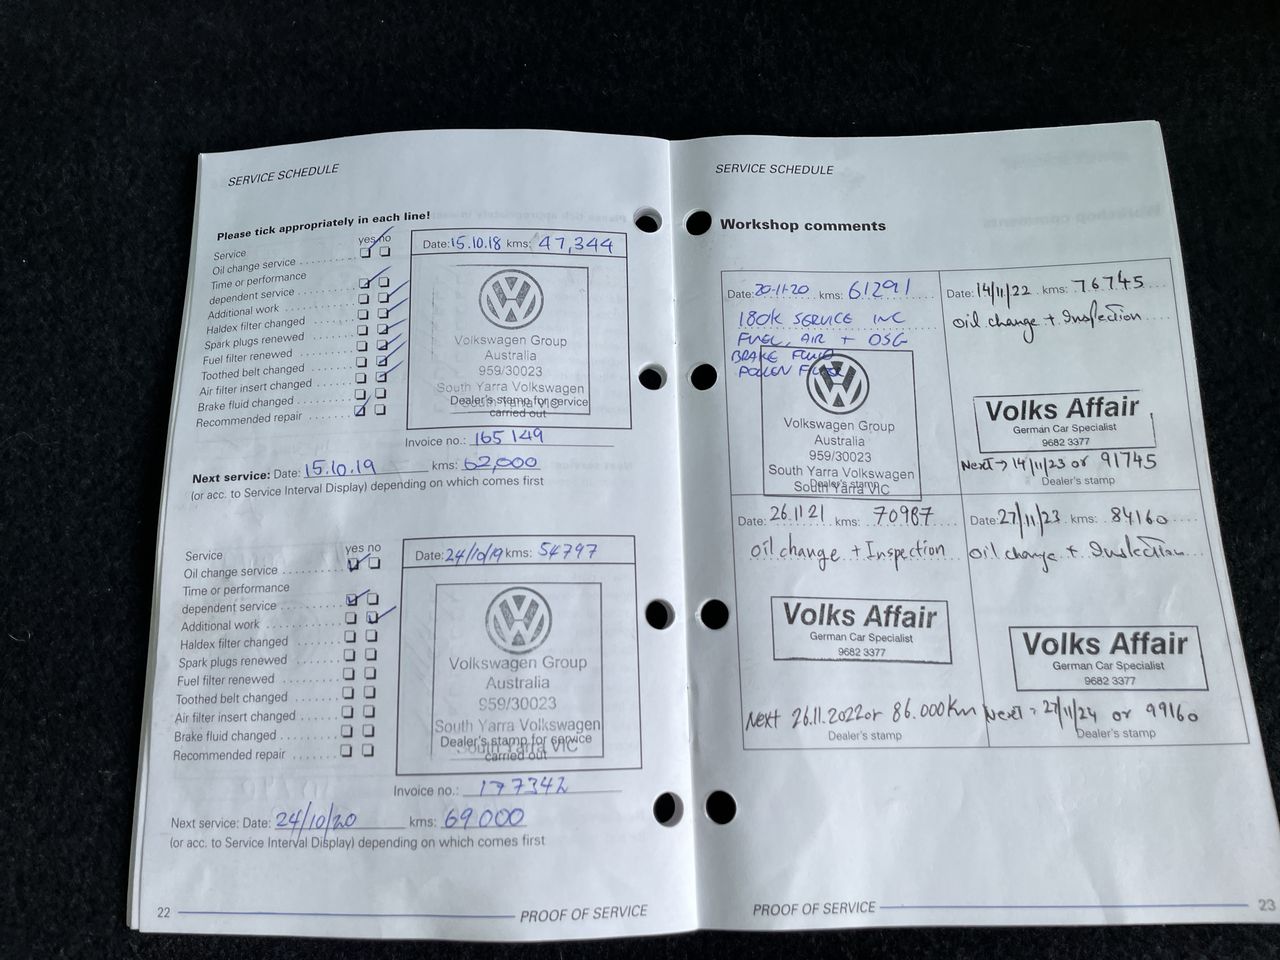 SERVICE SCHEDULE
Please tick appropriately in each line!
yes no
Service
Oil change service
Time or performance
dependent service
Additional work
Haldex filter changed
Spark plugs renewed
Fuel filter renewed
Toothed belt changed
Air filter insert changed
Brake fluid changed
Recommended repair
Date: 15.10.18 kms: 47,344
Volkswagen Group
Australia
959/30023
South Yarra Volkswagen
South Yarra VIC
Dealer's stamp for service
carried out
Invoice no.: 165149
Next service: Date: 15.10.19 kms: 62,000
(or acc. to Service Interval Display) depending on which comes first
yes no
Service
Oil change service
Time or performance
dependent service
Additional work
Haldex filter changed
Spark plugs renewed
Fuel filter renewed
Toothed belt changed
Air filter insert changed
Brake fluid changed
Recommended repair
Date: 24/10/19 kms: 54797
Volkswagen Group
Australia
959/30023
South Yarra Volkswagen
Dealer's stamp for service
South Yarra VIC
carried out
Invoice no.: 177342
Next service: Date: 24/10/20 kms: 69000
(or acc. to Service Interval Display) depending on which comes first
22 PROOF OF SERVICE
SERVICE SCHEDULE
Workshop comments
Date: 20-11-20 kms: 61291
180K SERVICE INC
FUEL, AIR + OSG
BRAKE FLUID
POLLEN FILTER
Volkswagen Group
Australia
959/30023
South Yarra Volkswagen
Dealer's stamp
South Yarra VIC
Date: 14/11/22 kms: 76745
oil change + Inspection
Volks Affair
German Car Specialist
9682 3377
Next → 14/11/23 or 91745
Dealer's stamp
Date: 26.11 21 kms: 70987
oil change + Inspection
Volks Affair
German Car Specialist
9682 3377
Next 26.11.2022 or 86.000 Km
Dealer's stamp
Date: 27/11/23 kms: 84160
Oil change + Inspection
Volks Affair
German Car Specialist
9682 3377
Next = 27/11/24 or 99160
Dealer's stamp
PROOF OF SERVICE 23